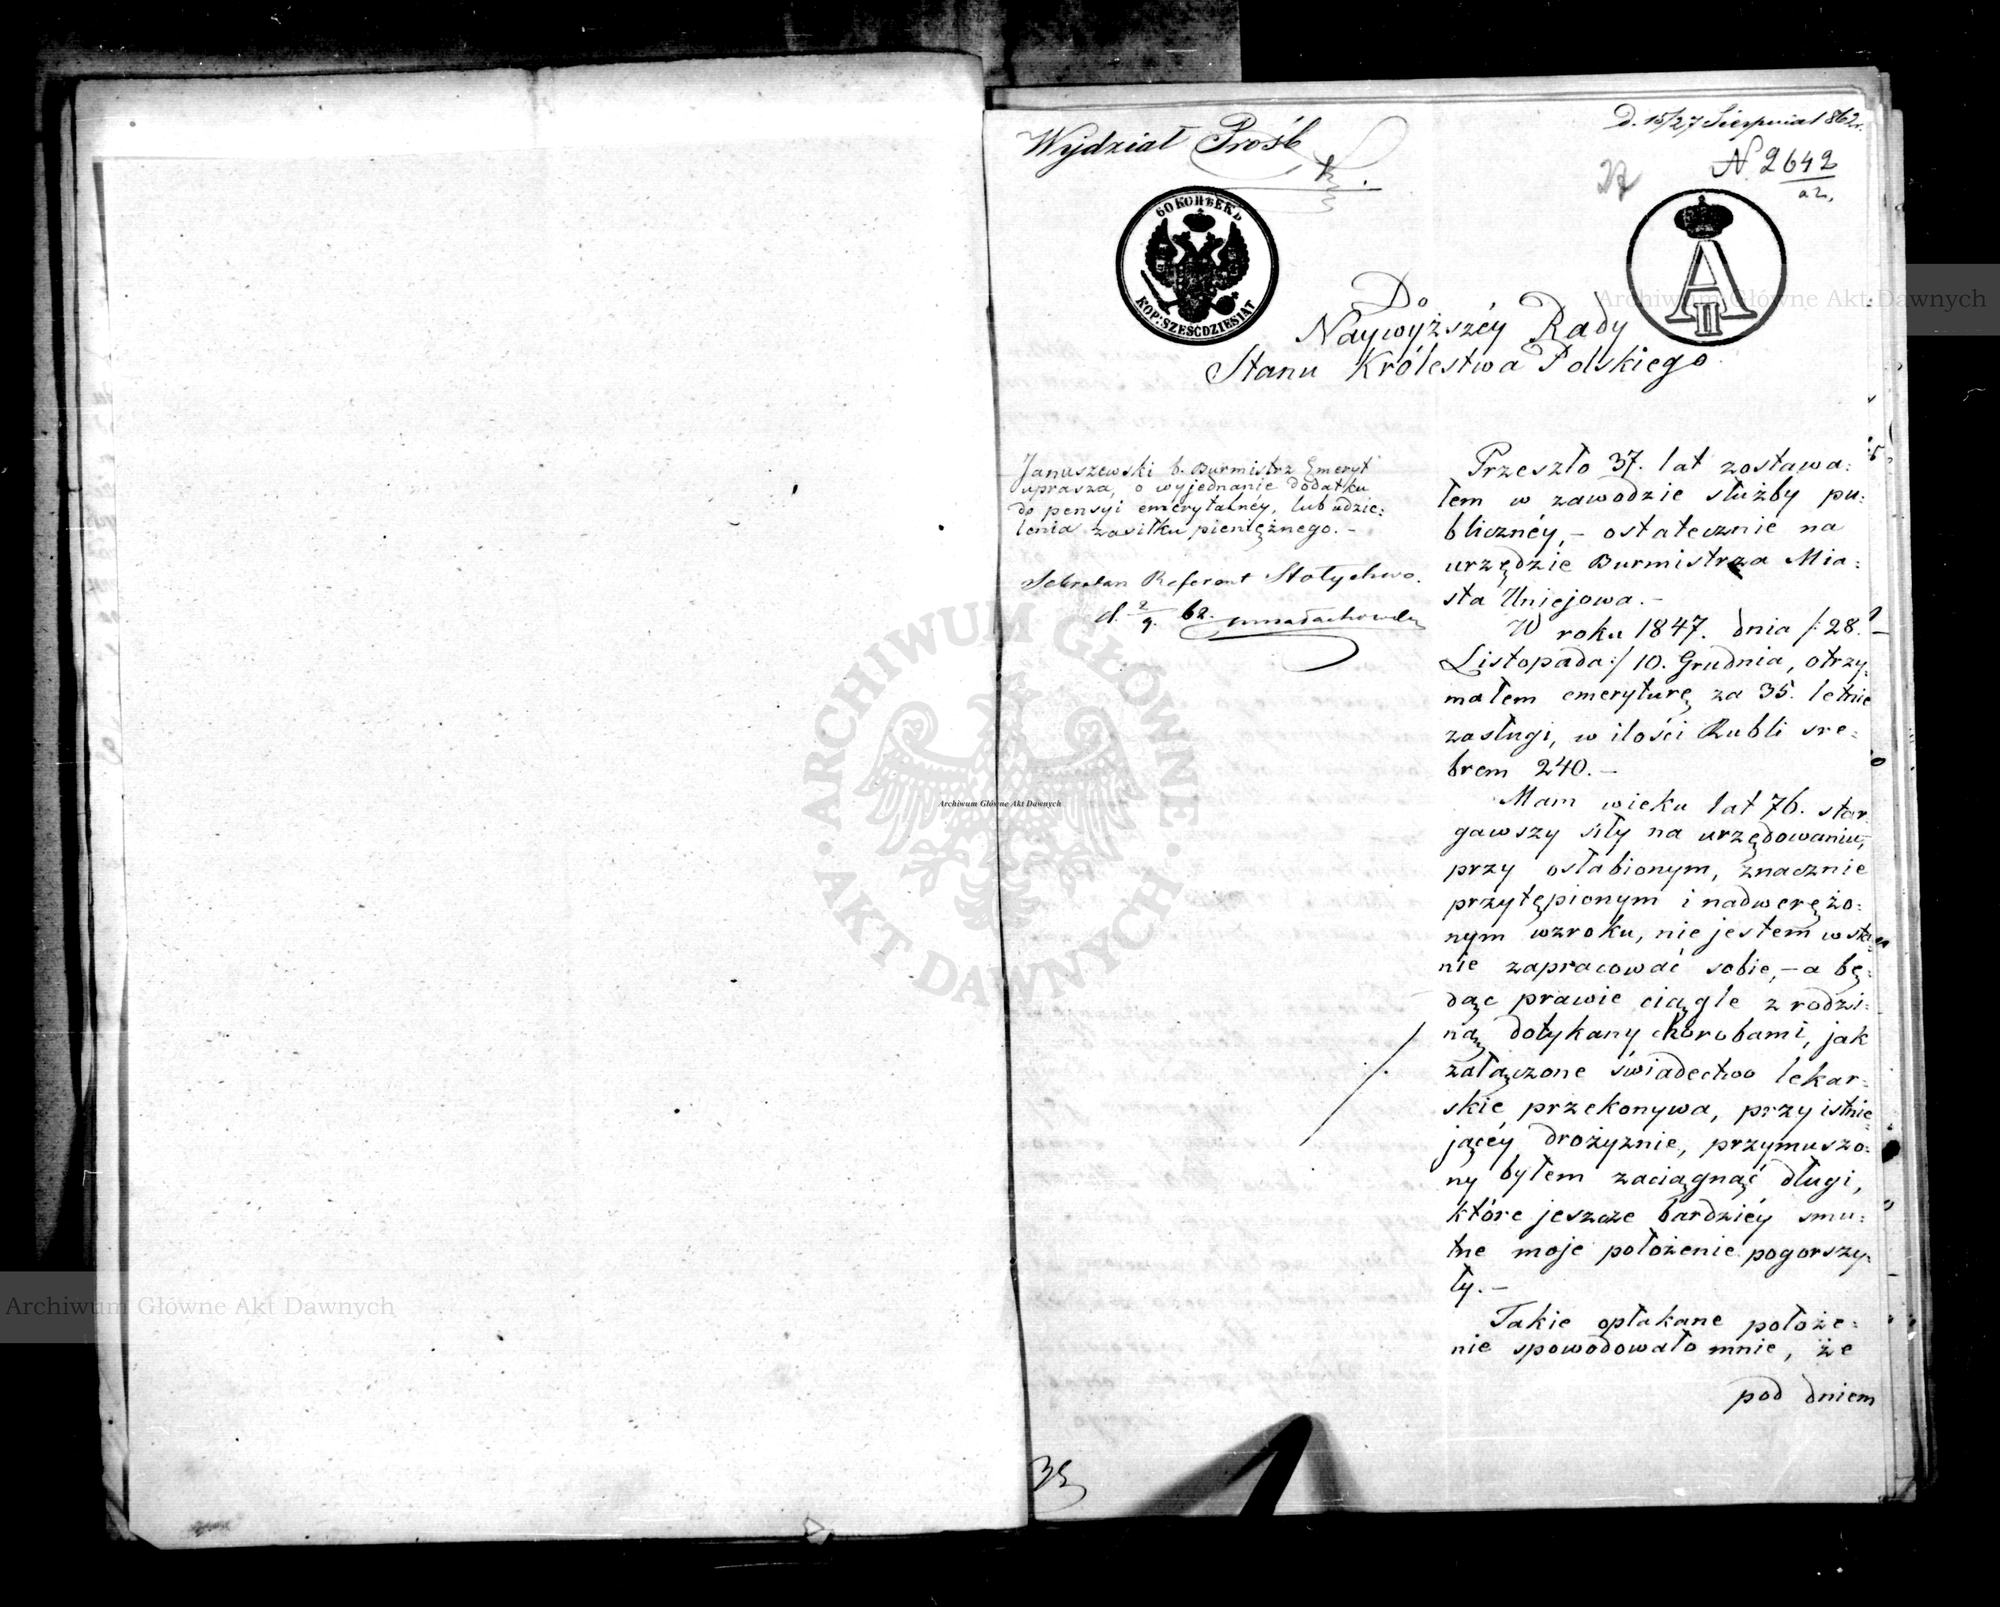 D. 15/27 Sierpnia 1862r.
Wydział Próśb
N 2642
60 КОПѢЕКЪ
KOP: SZEŚĆDZIESIAT
A II
Do
Naywyższéy Rady
Stanu Królestwa Polskiego
Januszewski b. Burmistrz Emeryt
uprasza, o wyjednanie dodatku
do pensyi emerytalnéy, lub udzie:
lenia zasiłku pieniężnego. –
Referent
d. 2/9. 62.
Przeszło 37. lat zostawa:
łem w zawodzie służby pu:
blicznéy, – ostatecznie na
urzędzie Burmistrza Mia:
sta Uniejowa. –
W roku 1847. dnia /:28.
Listopada:/ 10. Grudnia, otrzy,
małem emeryturę za 35. letnie
zasługi, w ilości Rubli sre:
brem 240. –
Mam wieku lat 76. star,
gawszy siły na urzędowaniu,
przy osłabionym, znacznie
przytępionym i nadwerężo:
nym wzroku, nie jestem w sta:
nie zapracować sobie, – a bę:
dąc prawie ciągle z rodzi:
ną dotykany chorobami, jak
załączone świadectwo lekar:
skie przekonywa, przy istnie
jącéy drożyznie, przymuszo:
ny byłem zaciągnąć długi,
które jeszcze bardziéy smu:
tne moje położenie pogorszy,
ły. –
Takie opłakane położe:
nie spowodowało mnie, że
pod dniem
Archiwum Główne Akt Dawnych
ARCHIWUM GŁÓWNE
Archiwum Główne Akt Dawnych
AKT DAWNYCH
Archiwum Główne Akt Dawnych